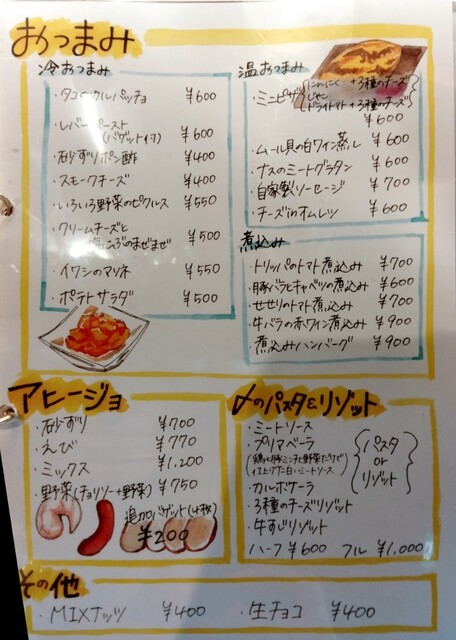 おつまみ
冷おつまみ
・タコのカルパッチョ ¥600
・レバーペースト
(バゲット付) ¥600
・砂ずりポン酢 ¥400
・スモークチーズ ¥400
・いろいろ野菜のピクルス ¥550
・クリームチーズと
梅こんぶのまぜまぜ ¥500
・イワシのマリネ ¥550
・ポテトサラダ ¥500
温おつまみ
・ミニピザ
じゃこ
(ドライトマト+3種のチーズ)
¥600
・ムール貝の白ワイン蒸し ¥600
・ナスのミートグラタン ¥600
・自家製ソーセージ ¥700
・チーズinオムレツ ¥600
煮込み
・トリッパのトマト煮込み ¥700
・豚バラとキャベツの煮込み ¥600
・せせりのトマト煮込み ¥700
・牛バラの赤ワイン煮込み ¥900
・煮込みハンバーグ ¥900
アヒージョ
・砂ずり ¥700
・えび ¥770
・ミックス ¥1,200
・野菜(チョリソー+野菜) ¥750
追加バゲット(4枚)
¥200
〆のパスタ&リゾット
・ミートソース
・プリマベーラ
(鶏と豚ミンチと野菜だけで
仕上げた白いミートソース)
・カルボナーラ
・3種のチーズリゾット
・牛すじリゾット
(パスタ
or
リゾット)
ハーフ ¥600 フル ¥1,000
その他
・MIXナッツ ¥400 ・生チョコ ¥400